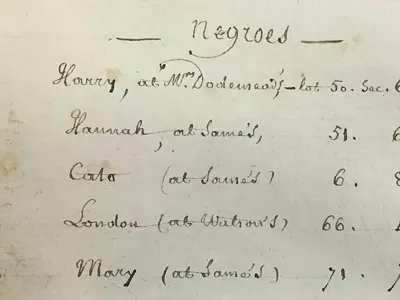 — Negroes —
Harry, at Mrs Dodemead's, – lot 50. Sec. 6
Hannah, at Same's, 51. 6
Cato (at Same's) 6. 8
London (at Watson's) 66.
Mary (at Same's) 71. 7